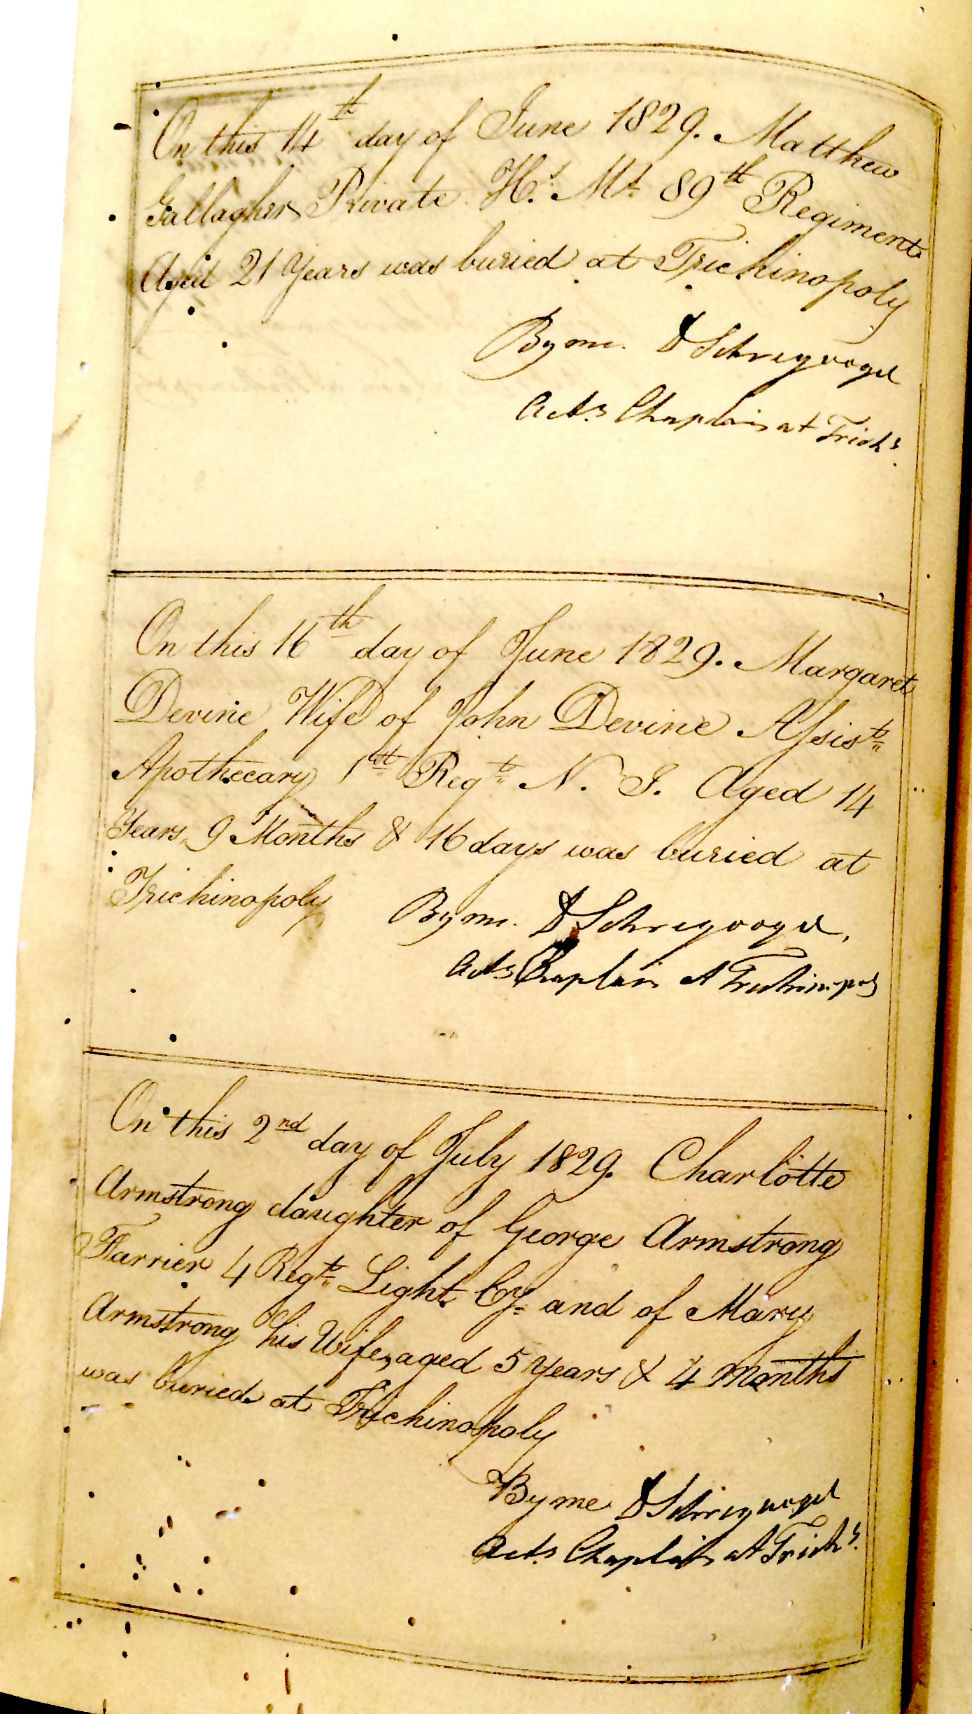 On this 14th day of June 1829. Matthew
Gallagher Private H.s M.s 89th Regiment
Aged 21 Years was buried at Trichinopoly
By me. D Schreyvogel
Actg Chaplain at Trichy.
On this 16th day of June 1829. Margaret
Devine Wife of John Devine Assist.
Apothecary 1st Regt. N. I. Aged 14
Years 9 Months & 16 days was buried at
Trichinopoly
By me. D Schreyvogel,
Actg Chaplain at Trichinopoly
On this 2nd day of July 1829. Charlotte
Armstrong daughter of George Armstrong
Farrier 4 Regt. Light Cy. and of Mary
Armstrong his Wife, aged 5 Years & 4 Months
was buried at Trichinopoly
By me D Schreyvogel
Actg Chaplain at Trichy.